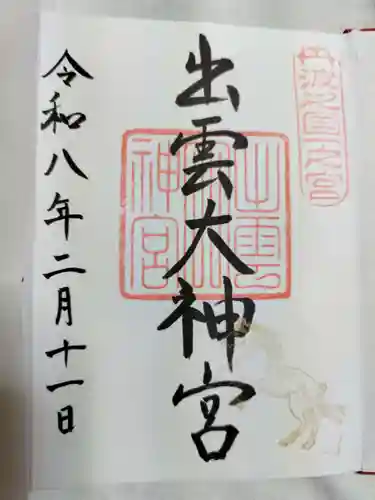 丹波國一之宮
出雲大神宮
出雲大神宮
令和八年二月十一日